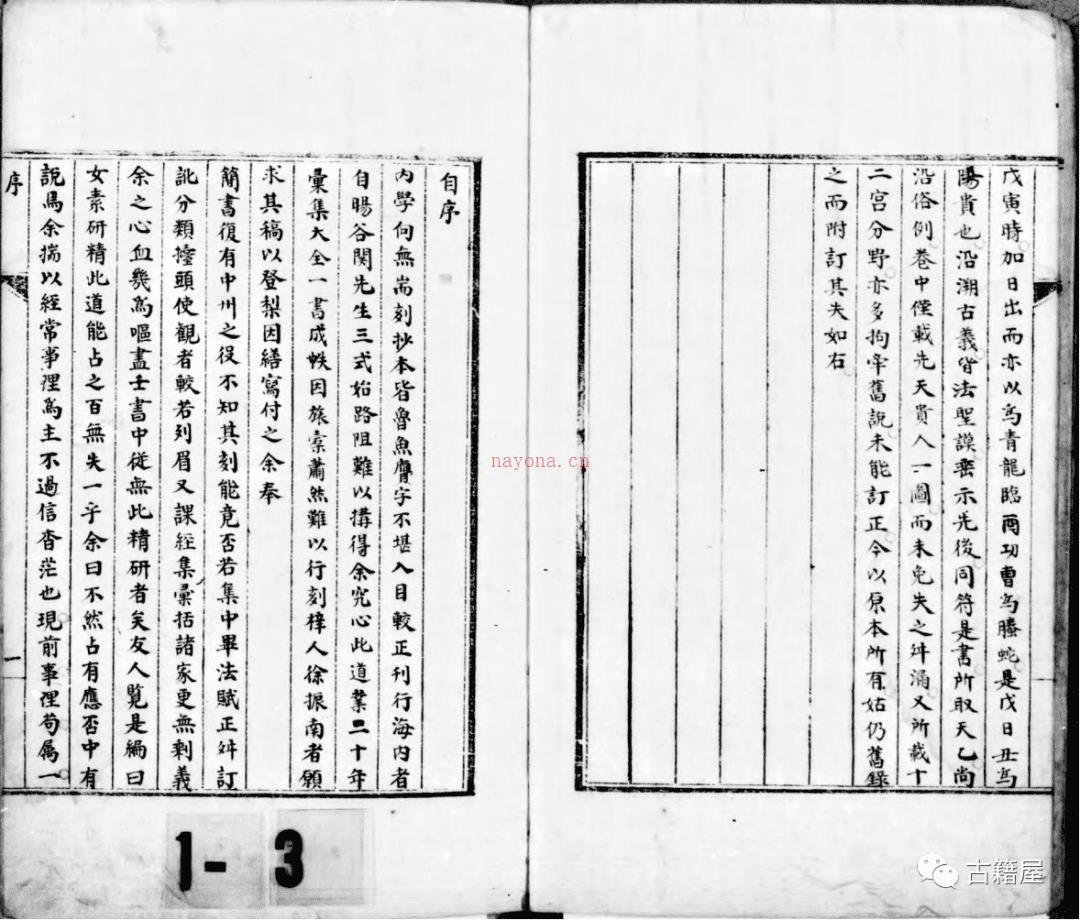 戊寅時加日出而亦以為青龍臨酉功曹為螣蛇是戊日丑為
陽貴也沿溯古義皆法聖謨垂示先後同符是書所取天乙尚
沿俗例卷中僅載先天貴人一圖而未免失之舛漏又所載十
二宮分野亦多拘牽舊說未能訂正今以原本所有姑仍舊錄
之而附訂其失如右
自序
內學向無耑刻抄本皆魯魚贋字不堪入目較正刊行海內者
自暘谷関先生三式始路阻難以搆得余究心此道業二十年
彙集大全一書成帙因旅橐蕭然難以行刻梓人徐振南者願
求其稿以登梨因繕寫付之余奉
簡書復有中州之役不知其刻能竟否若集中畢法賦正舛訂
訛分類擡頭使觀者較若列眉又課經集彙括諸家更無剩義
余之心血幾為嘔盡壬書中從無此精研者矣友人覧是編曰
女素研精此道能占之百無失一乎余曰不然占有應否中有
說焉余揣以經常事理為主不過信杳茫也現前事理茍属一
序
一
1-3
nayona.cn
古籍屋